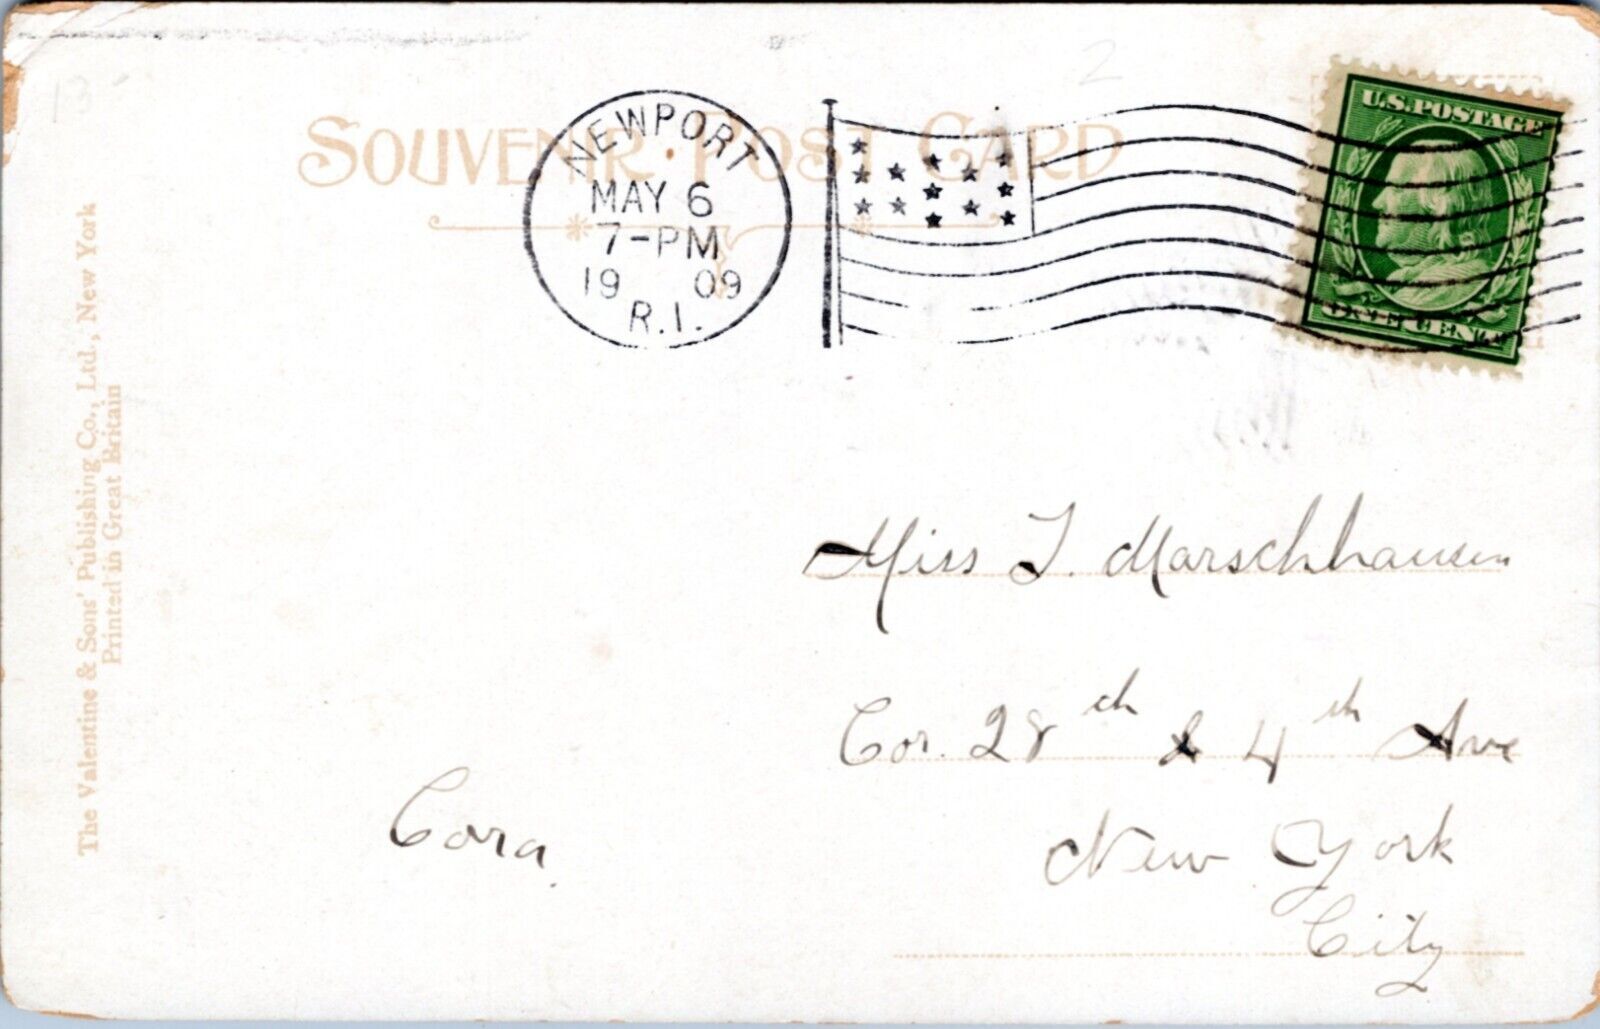 13-
2
SOUVENIR POST CARD
NEWPORT
MAY 6
7-PM
19 09
R.I.
U.S. POSTAGE
ONE CENT
The Valentine & Sons' Publishing Co., Ltd., New York
Printed in Great Britain
Miss J. Marschhausen
Cor. 28th & 4th Ave
New York
City
Cora.